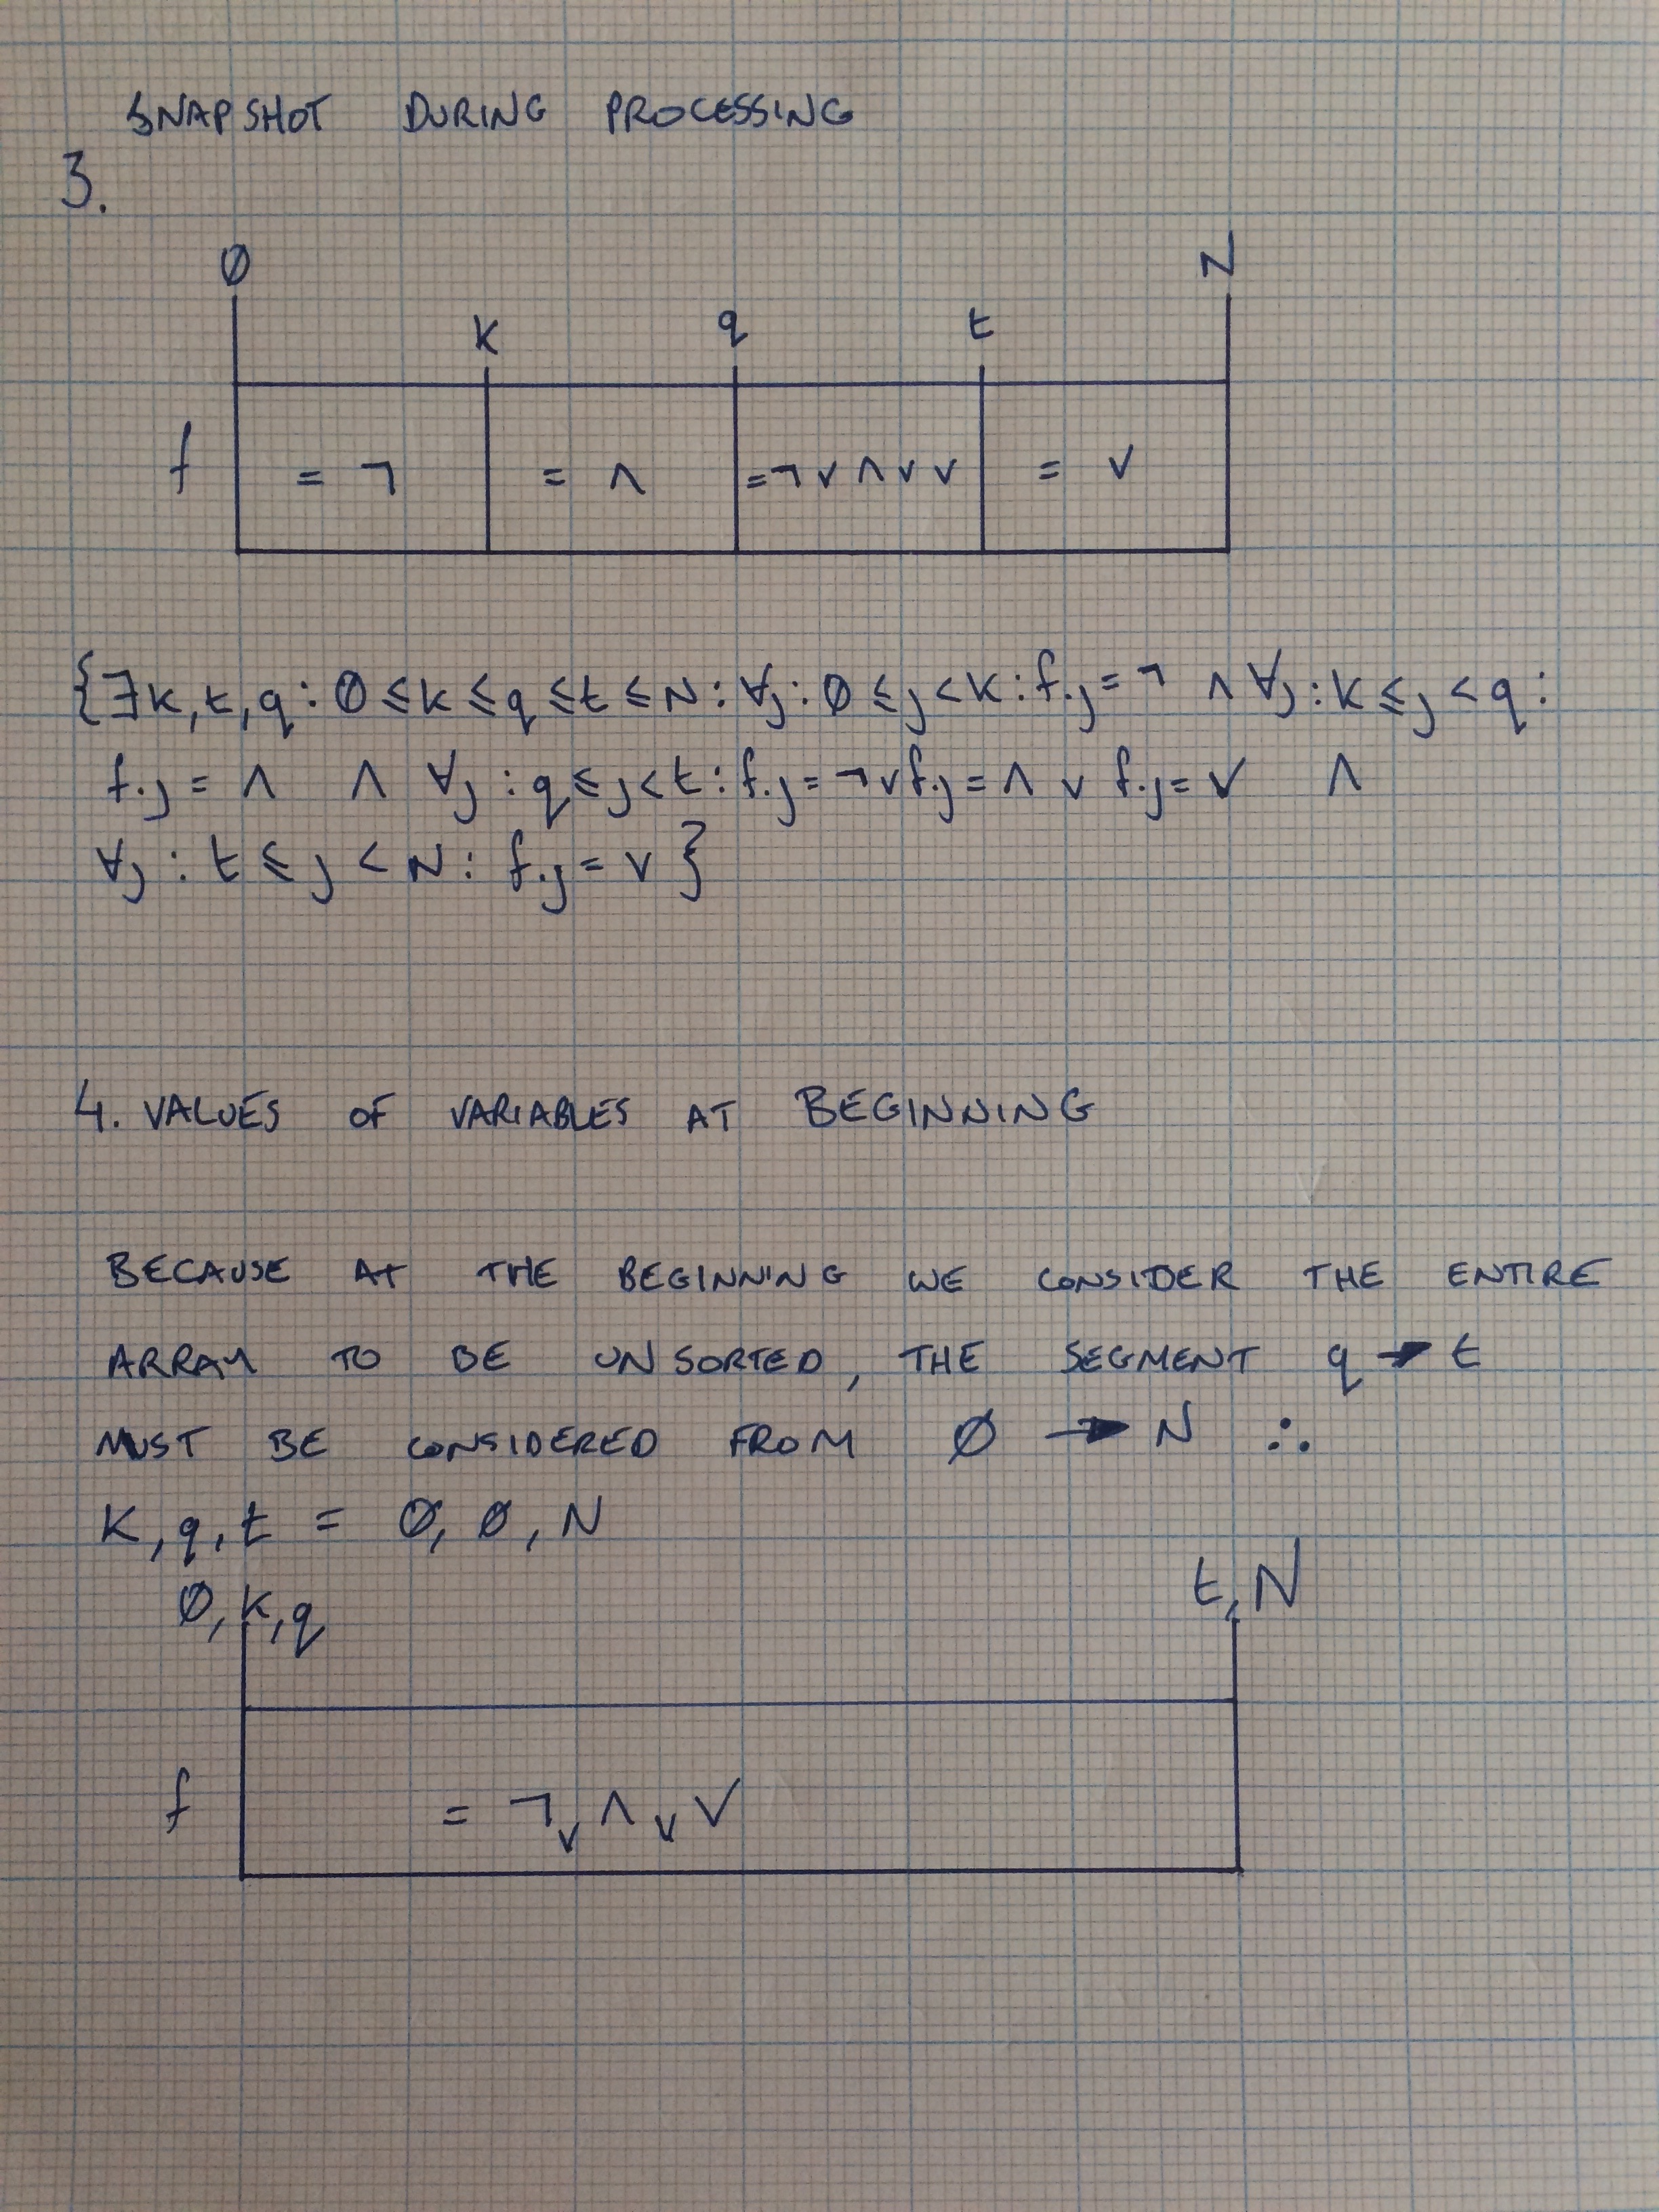 SNAPSHOT DURING PROCESSING
3.
Ø N
k q t
f = ¬ = ∧ =¬ ∨ ∧ ∨ ∨ = ∨
{∃k,t,q : Ø ≤ k ≤ q ≤ t ≤ N : ∀j : Ø ≤ j < k : f.j = ¬ ∧ ∀j : k ≤ j < q :
f.j = ∧ ∧ ∀j : q ≤ j < t : f.j = ¬ ∨ f.j = ∧ ∨ f.j = ∨ ∧
∀j : t ≤ j < N : f.j = ∨ }
4. VALUES OF VARIABLES AT BEGINNING
BECAUSE AT THE BEGINNING WE CONSIDER THE ENTIRE
ARRAY TO BE UNSORTED, THE SEGMENT q → t
MUST BE CONSIDERED FROM Ø → N ∴
K, q, t = Ø, Ø, N
Ø, K, q t, N
f = ¬ ∨ ∧ ∨ ∨